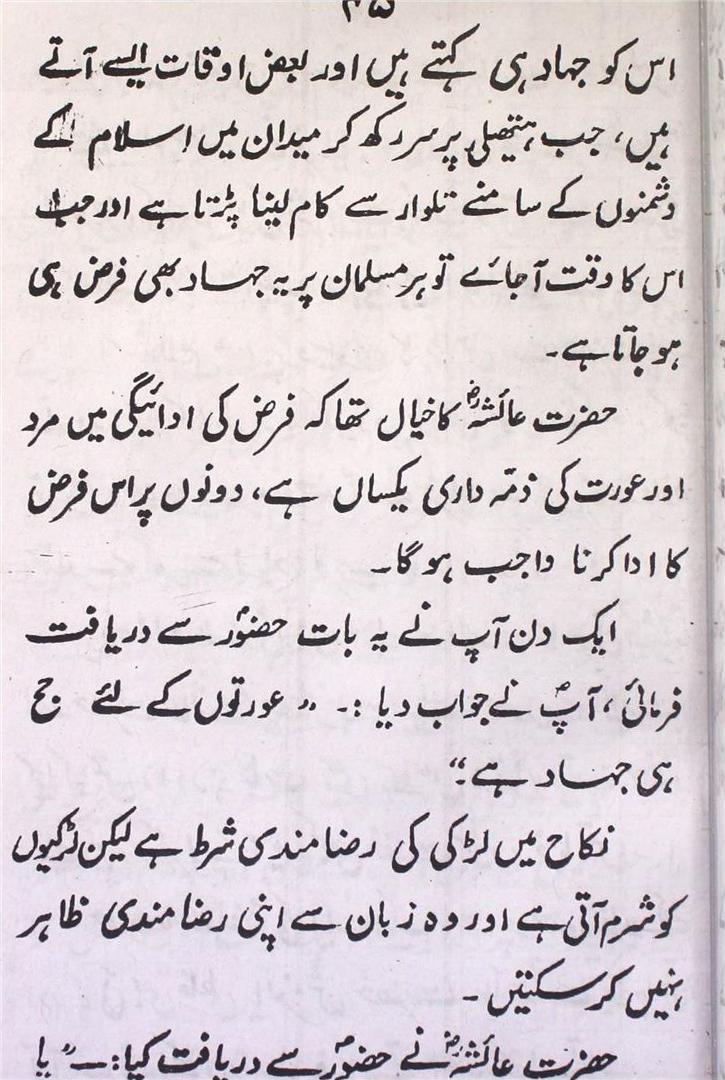 ۴۵
اس کو جہاد ہی کہتے ہیں اور بعض اوقات ایسے آتے
ہیں، جب ہتھیلی پر سر رکھ کر میدان میں اسلام کے
دشمنوں کے سامنے تلوار سے کام لینا پڑتا ہے اور جب
اس کا وقت آجائے تو ہر مسلمان پر یہ جہاد بھی فرض ہی
ہو جاتا ہے۔
حضرت عائشہؓ کا خیال تھا کہ فرض کی ادائیگی میں مرد
اور عورت کی ذمّہ داری یکساں ہے، دونوں پر اس فرض
کا ادا کرنا واجب ہو گا۔
ایک دن آپ نے یہ بات حضورؐ سے دریافت
فرمائی، آپؐ نے جواب دیا :۔ " عورتوں کے لئے حج
ہی جہاد ہے۔"
نکاح میں لڑکی کی رضا مندی شرط ہے لیکن لڑکیوں
کو شرم آتی ہے اور وہ زبان سے اپنی رضا مندی ظاہر
نہیں کر سکتیں ۔
حضرت عائشہؓ نے حضورؐ سے دریافت کیا:۔ " یا